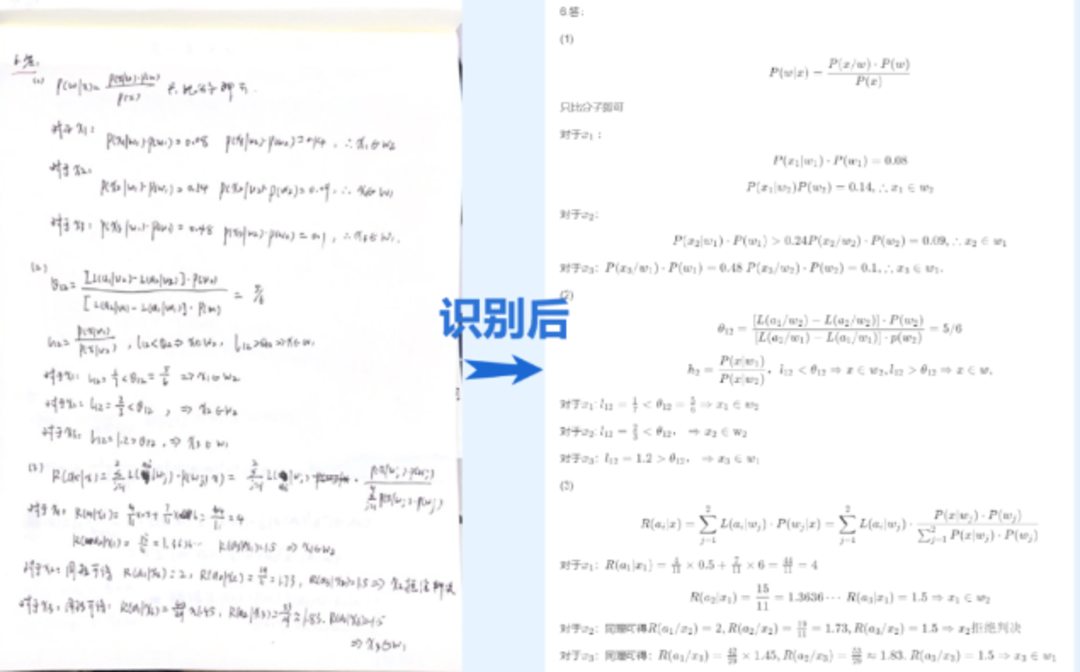 6答:
(1) P(w|x)=P(x|w)·P(w)/P(x) 只比分子即可.
对于x1:
P(x1|w1)·P(w1)=0.08 P(x1|w2)·P(w2)=0.14, ∴x1∈w2
对于x2:
P(x2|w1)·P(w1)=0.24 P(x2|w2)·P(w2)=0.09, ∴x2∈w1
对于x3: P(x3|w1)·P(w1)=0.48 P(x3|w2)·P(w2)=0.1, ∴x3∈w1.
(2)
θ12=[L(a1|w2)-L(a2|w2)]·P(w2)/[L(a2|w1)-L(a1|w1)]·P(w1)=5/6
l12=P(x|w1)/P(x|w2), l12<θ12⇒x∈w2, l12>θ12⇒x∈w1
对于x1: l12=4/7<θ12=5/6 ⇒x1∈w2
对于x2: l12=2/3<θ12, ⇒x2∈w2
对于x3: l12=1.2>θ12, ⇒x3∈w1
(3) R(ai|x)=
对于x1:
⇒x1∈w2
对于x2: 同理可得 R(a1|x2)=2, ⇒x2拒绝判决
对于x3: 同理可得:
⇒x3∈w1
识别后
6答:
(1)
P(w|x) = P(x/w)·P(w)/P(x)
只比分子即可
对于x1:
P(x1|w1)·P(w1) = 0.08
P(x1|w2)P(w2) = 0.14, ∴x1 ∈ w2
对于x2:
P(x2|w1)·P(w1) > 0.24P(x2/w2)·P(w2) = 0.09, ∴x2 ∈ w1
对于x3: P(x3/w1)·P(w1) = 0.48 P(x3/w2)·P(w2) = 0.1, ∴x3 ∈ w1.
(2)
θ12 = [L(a1/w2) − L(a2/w2)]·P(w2)/[L(a2/w1) − L(a1/w1)]·p(w2) = 5/6
h2 = P(x|w1)/P(x|w2), l12 < θ12 ⇒ x ∈ w2, l12 > θ12 ⇒ x ∈ w,
对于x1: l12 = 4/7 < θ12 = 5/6 ⇒ x1 ∈ w2
对于x2: l12 = 2/3 < θ12, ⇒ x2 ∈ w2
对于x3: l12 = 1.2 > θ12, ⇒ x3 ∈ w1
(3)
R(ai|x) = ∑j=1^2 L(ai|wj)·P(wj|x) = ∑j=1^2 L(ai|wj)·P(x|wj)·P(wj)/∑j=1^2 P(x|wj)·P(wj)
对于x1: R(a1|x1) = 4/11 × 0.5 + 7/11 × 6 = 44/11 = 4
R(a2|x1) = 15/11 = 1.3636··· R(a3|x1) = 1.5 ⇒ x1 ∈ w2
对于x2: 同理可得R(a1/x2) = 2, R(a2/x2) = 19/11 = 1.73, R(a3/x2) = 1.5 ⇒ x2拒绝判决
对于x3: 同理可得: R(a1/x3) = 42/29 × 1.45, R(a2/x3) = 53/29 ≈ 1.83. R(a3/x3) = 1.5 ⇒ x3 ∈ w1